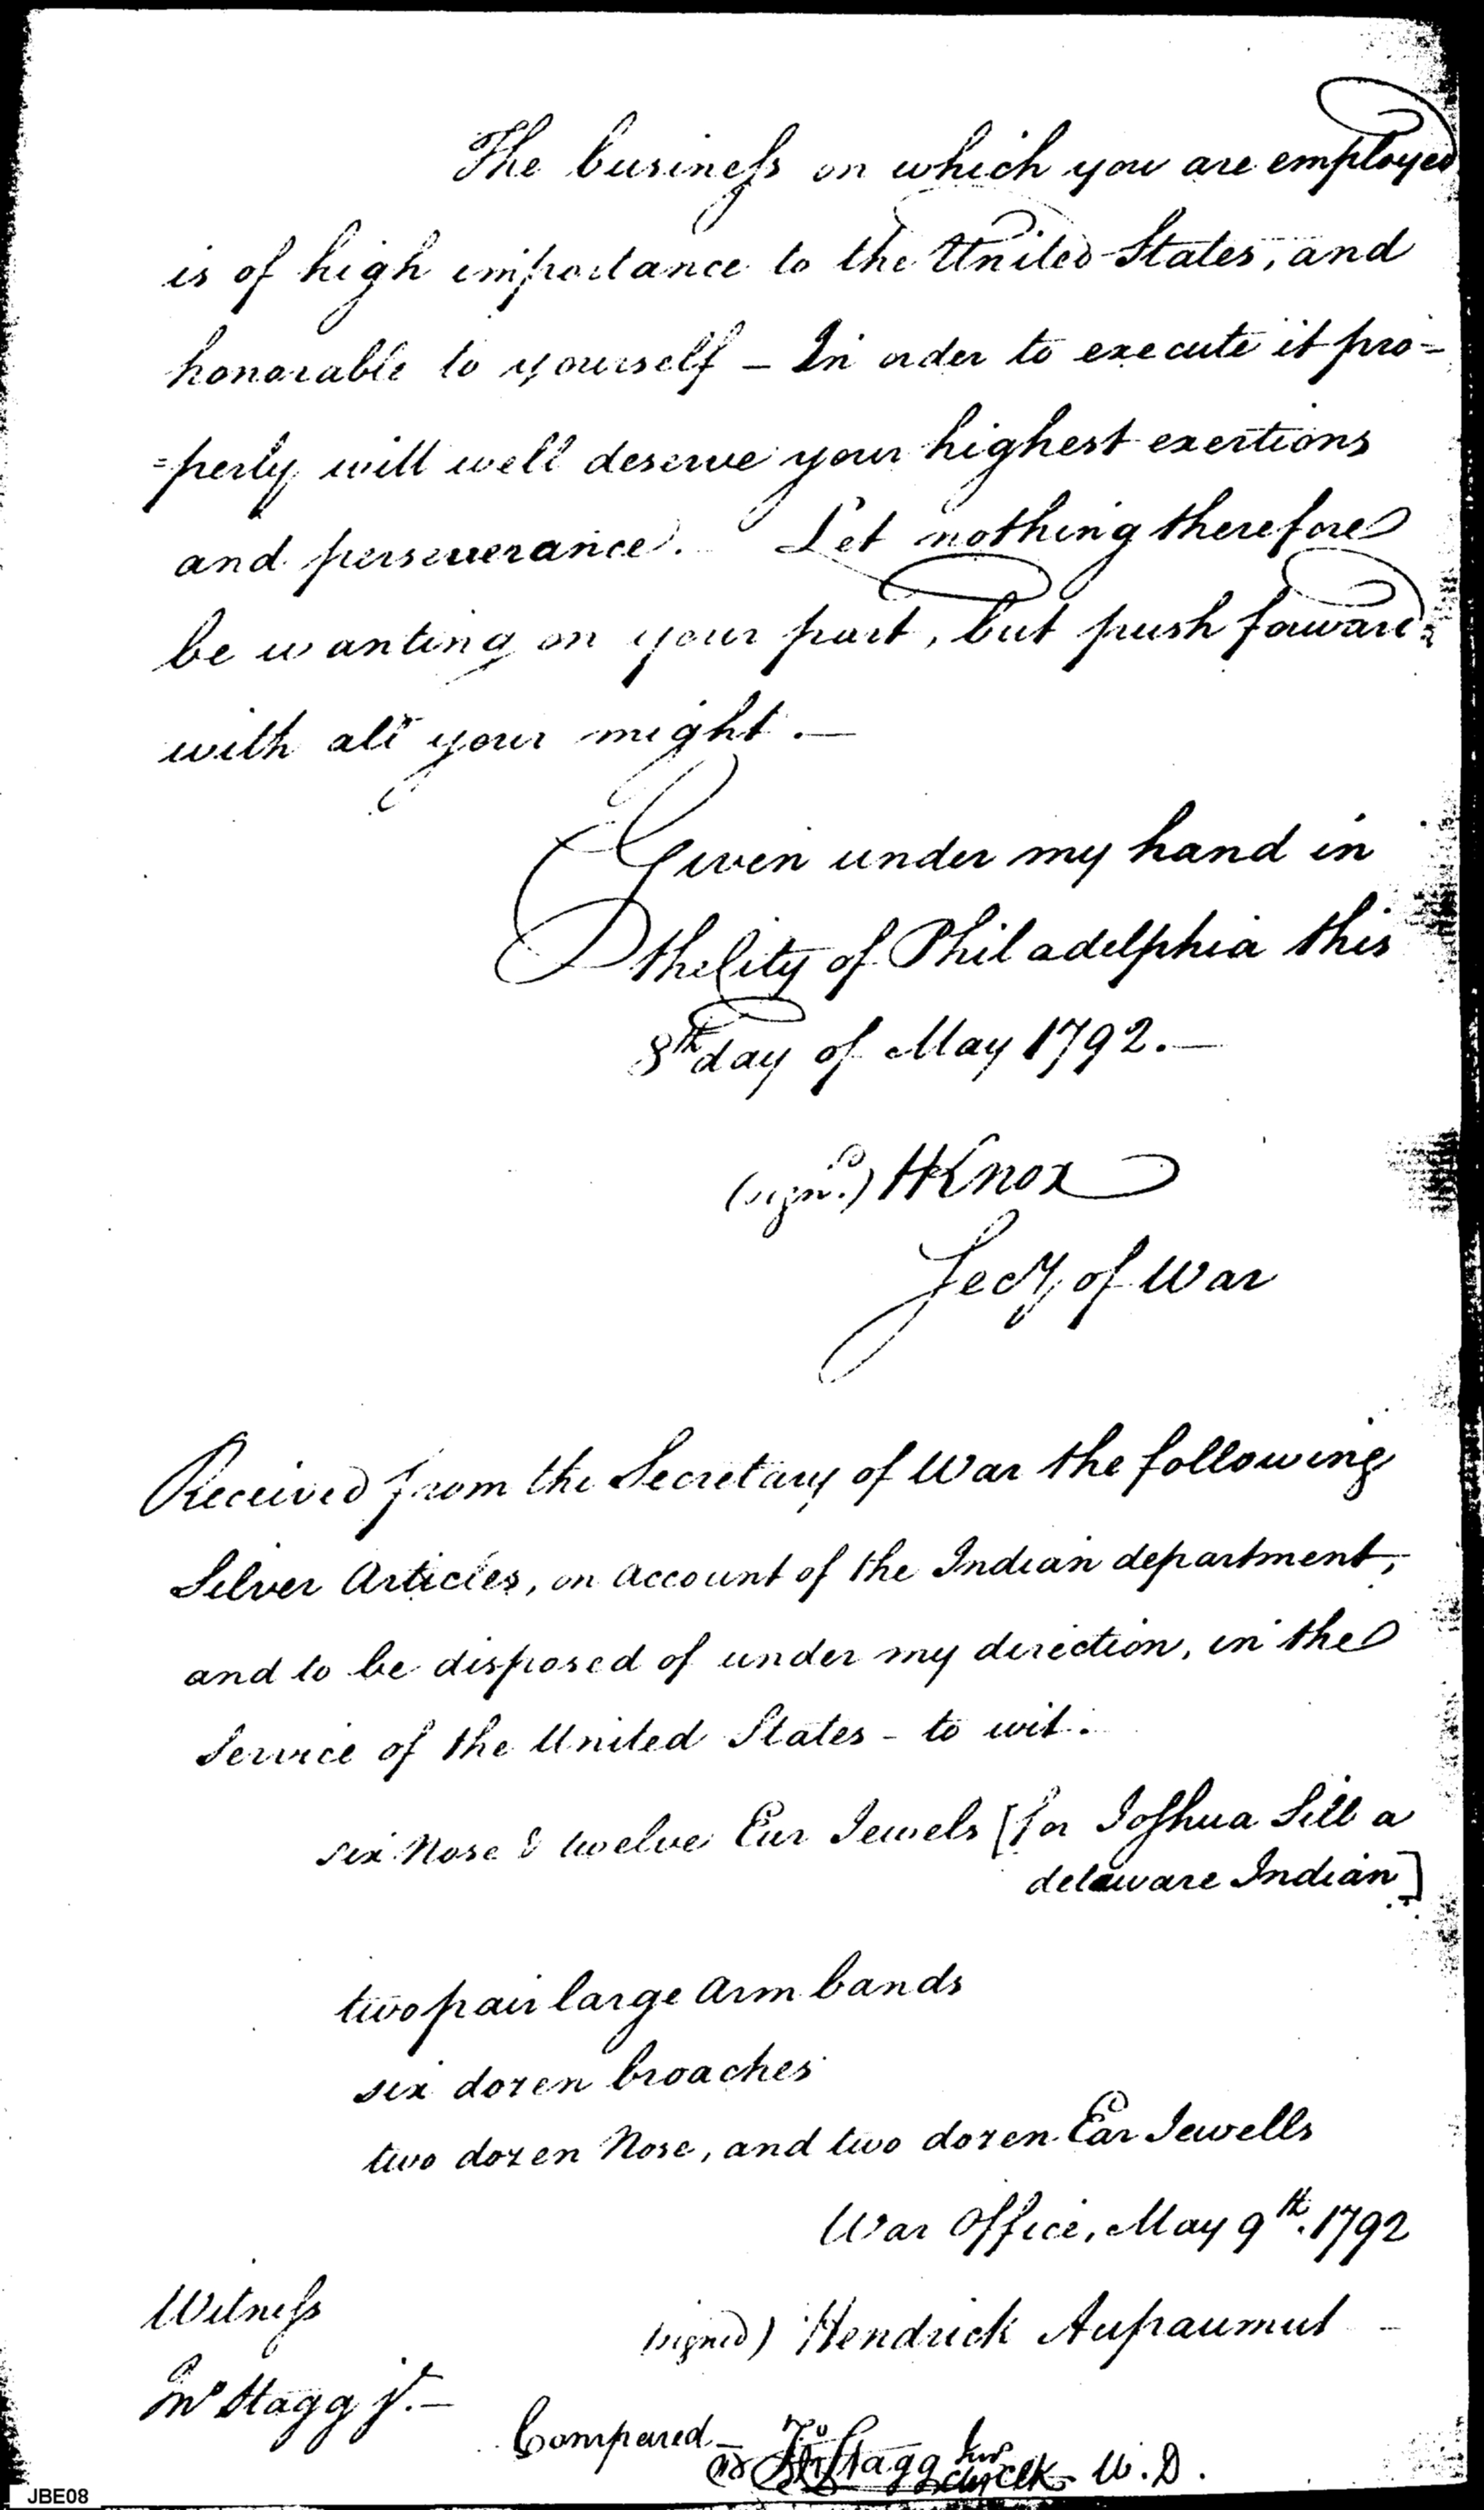 The business on which you are employed
is of high importance to the United States, and
honorable to yourself - In order to execute it pro=
=perly will well deserve your highest exertions
and perseverance. Let nothing therefore
be wanting on your part, but push forward
with all your might. —
Given under my hand in
the City of Philadelphia this
8th day of May 1792. —
(sign'd.) HKnox
Secy of War
Received from the Secretary of War the following
Silver Articles, on account of the Indian department,
and to be disposed of under my direction, in the
Service of the United States - to wit.
six Nose & twelve Ear Jewels [for Joshua Sill a
delaware Indian]
two pair large arm bands
six dozen broaches
two dozen Nose, and two dozen Ear Jewells
War Office, May 9th. 1792
Witness
(signed) Hendrick Aupaumut
Jno Stagg jr. —
Compared —
Jno Stagg Junr Clk W.D.
JBE08